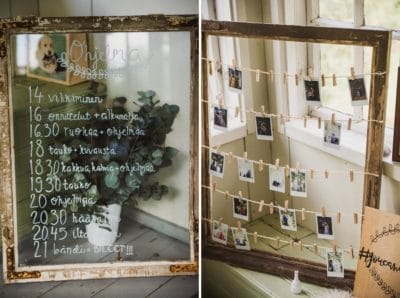 Ohjelma
14 vihkiminen
16 onnittelut + alkumalja
16.30 ruokaa + ohjelmaa
18 tauko + kuvaus
18.30 kakkukahvia + ohjelmaa
19.30 tauko
20 ohjelmaa
20.30 häätanssi
20.45
21 bändi + BILEET!!!